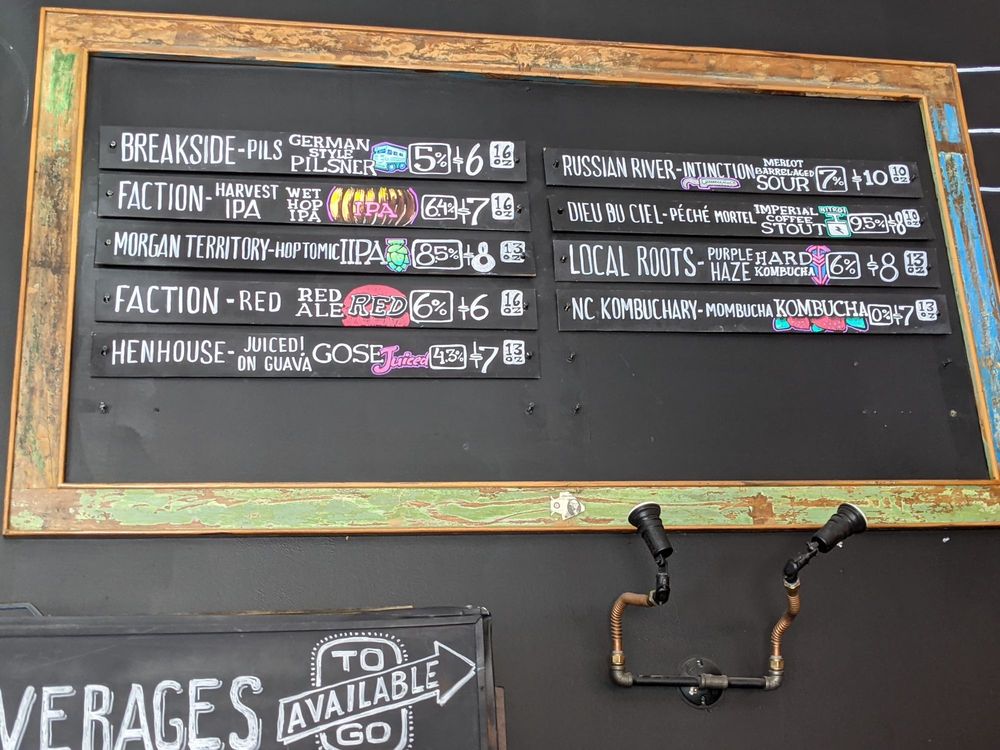 BREAKSIDE-PILS GERMAN STYLE PILSNER 5% $6 16 OZ
FACTION-HARVEST IPA WET HOP IPA IPA 6.4% $7 16 OZ
MORGAN TERRITORY-HOPTOMIC IIPA 8.5% $8 13 OZ
FACTION-RED RED ALE RED 6% $6 16 OZ
HENHOUSE-JUICED! ON GUAVA GOSE Juiced 4.3% $7 13 OZ
RUSSIAN RIVER-INTINCTION MERLOT BARREL AGED SOUR 7% $10 10 OZ
DIEU BU CIEL-PÉCHÉ MORTEL IMPERIAL COFFEE STOUT NITRO! 9.5% $8 10 OZ
LOCAL ROOTS-PURPLE HAZE HARD KOMBUCHA 6% $8 13 OZ
NC KOMBUCHARY-MOMBUCHA KOMBUCHA 0% $7 13 OZ
VERAGES
TO
AVAILABLE
GO